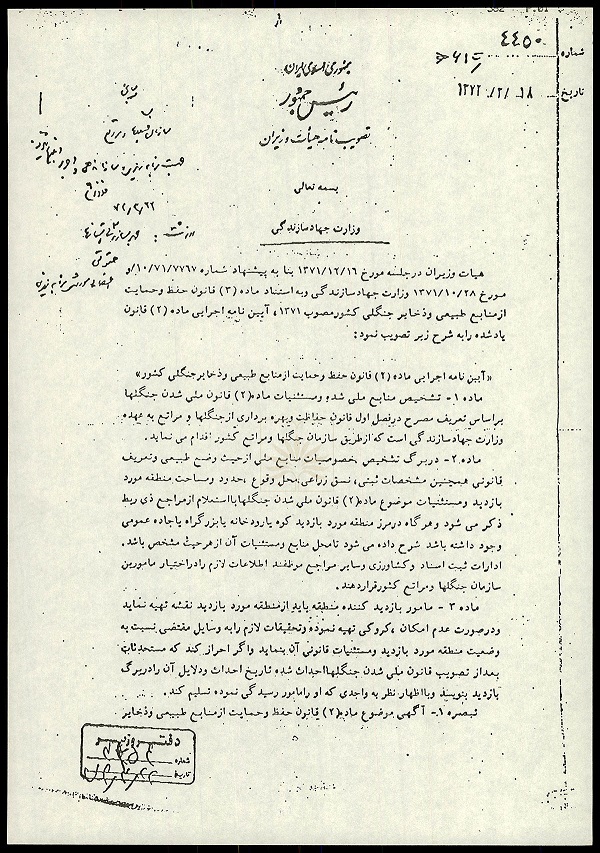 شماره ۴۴۵۰
تاریخ ۱۳۷۲/۲/۱۸
جمهوری اسلامی ایران
رئیس جمهور
تصویب نامه هیأت وزیران
بسمه تعالی
وزارت جهادسازندگی
هیات وزیران درجلسه مورخ ۱۳۷۱/۱۲/۱۶ بنا به پیشنهاد شماره ۱۰/۷۱/۷۷۶۷/و
مورخ ۱۳۷۱/۱۰/۲۸ وزارت جهادسازندگی وبه استناد ماده (۳) قانون حفظ وحمایت
ازمنابع طبیعی وذخایر جنگلی کشورمصوب ۱۳۷۱، آیین نامه اجرایی ماده (۲) قانون
یادشده رابه شرح زیر تصویب نمود:
«آیین نامه اجرایی ماده (۲) قانون حفظ وحمایت ازمنابع طبیعی وذخایرجنگلی کشور»
ماده ۱- تشخیص منابع ملی شده ومستثنیات ماده(۲) قانون ملی شدن جنگلها
براساس تعریف مصرح درفصل اول قانون حفاظت وبهره برداری ازجنگلها و مراتع به عهده
وزارت جهادسازندگی است که ازطریق سازمان جنگلها ومراتع کشور اقدام می نماید.
ماده ۲- دربرگ تشخیص خصوصیات منابع ملی ازحیث وضع طبیعی وتعریف
قانونی همچنین مشخصات ثبتی، نسق زراعی، محل وقوع، حدود ومساحت منطقه مورد
بازدید ومستثنیات موضوع ماده(۲) قانون ملی شدن جنگلهابااستعلام ازمراجع ذی ربط
ذکر می شود وهرگاه درمرز منطقه مورد بازدید کوه یارودخانه یابزرگراه یاجاده عمومی
وجود داشته باشد شرح داده می شود تامحل منابع ومستثنیات آن ازهرحیث مشخص باشد.
ادارات ثبت اسناد وکشاورزی وسایر مراجع موظفند اطلاعات لازم رادراختیار مامورین
سازمان جنگلها ومراتع کشورقراردهند.
ماده ۳- مامور بازدید کننده منطقه باید ازمنطقه مورد بازدید نقشه تهیه نماید
ودرصورت عدم امکان، کروکی تهیه نموده وتحقیقات لازم رابه وسایل مقتضی نسبت به
وضعیت منطقه مورد بازدید ومستثنیات قانونی آن بنماید واگر احراز کند که مستحدثات
بعداز تصویب قانون ملی شدن جنگلهااحداث شده تاریخ احداث ودلایل آن رادربرگ
بازدید بنویسد وبااظهار نظر به واحدی که او رامامور رسیدگی نموده تسلیم کند.
تبصره ۱- آگهی موضوع ماده(۲) قانون حفظ وحمایت ازمنابع طبیعی وذخایر
دفتر وزیر
شماره
تاریخ